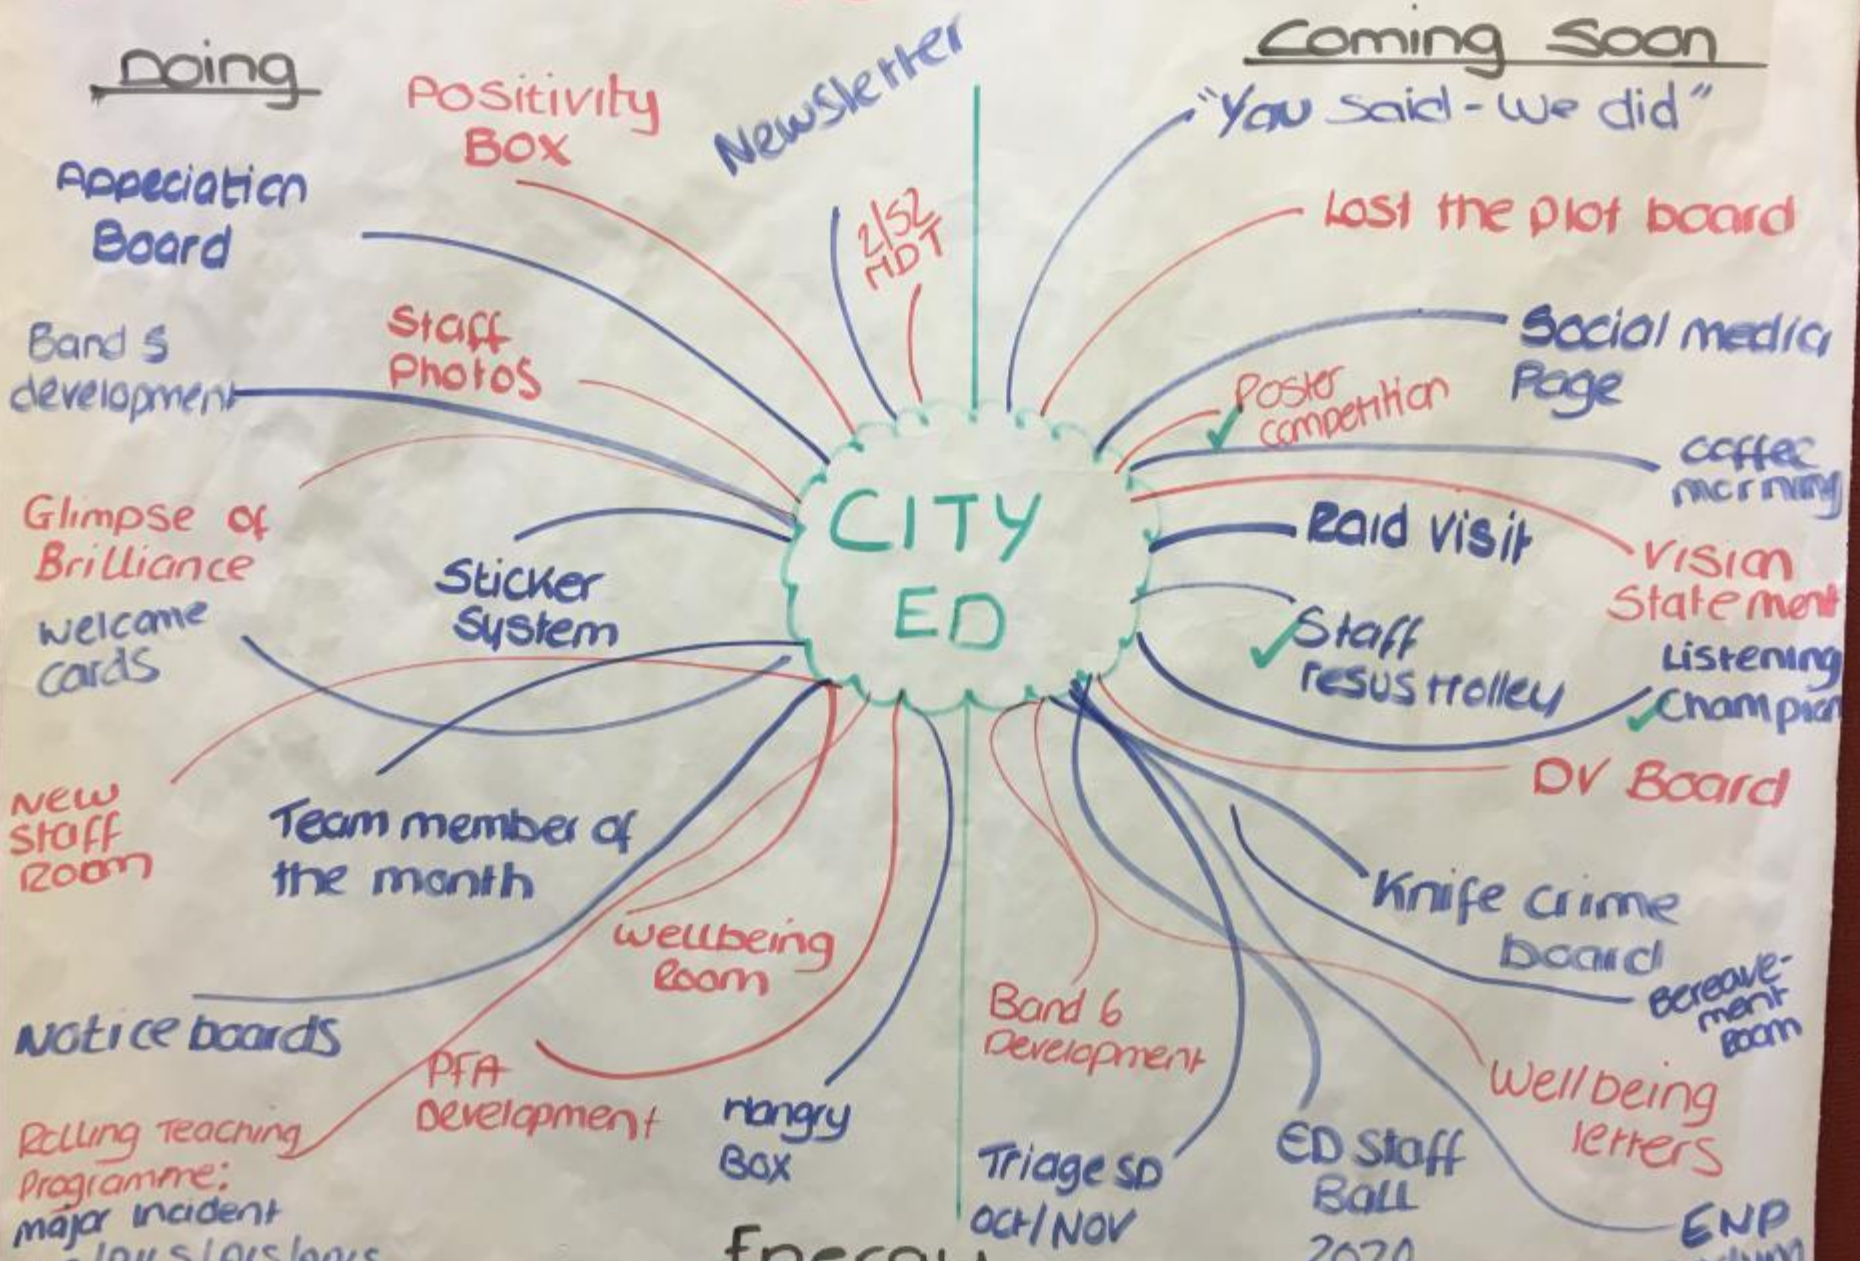 Doing
Positivity
Box
Newsletter
2/52
MDT
Appeciation
Board
Band 5
development
Staff
Photos
Glimpse of
Brilliance
Sticker
System
welcome
cards
New
Staff
Room
Team member of
the month
Wellbeing
Room
Notice boards
PFA
Development
Hangry
Box
Rolling Teaching
Programme:
major incident
CITY
ED
Coming Soon
"You said - we did"
Lost the plot board
Social media
Page
Poster
competition
coffee
morning
Raid visit
Vision
Statement
Staff
resus trolley
Listening
Champion
DV Board
Knife crime
board
Bereave-
ment
Room
Band 6
Development
Wellbeing
letters
Triage SD
Oct/Nov
ED Staff
Ball
2020
ENP
Energy